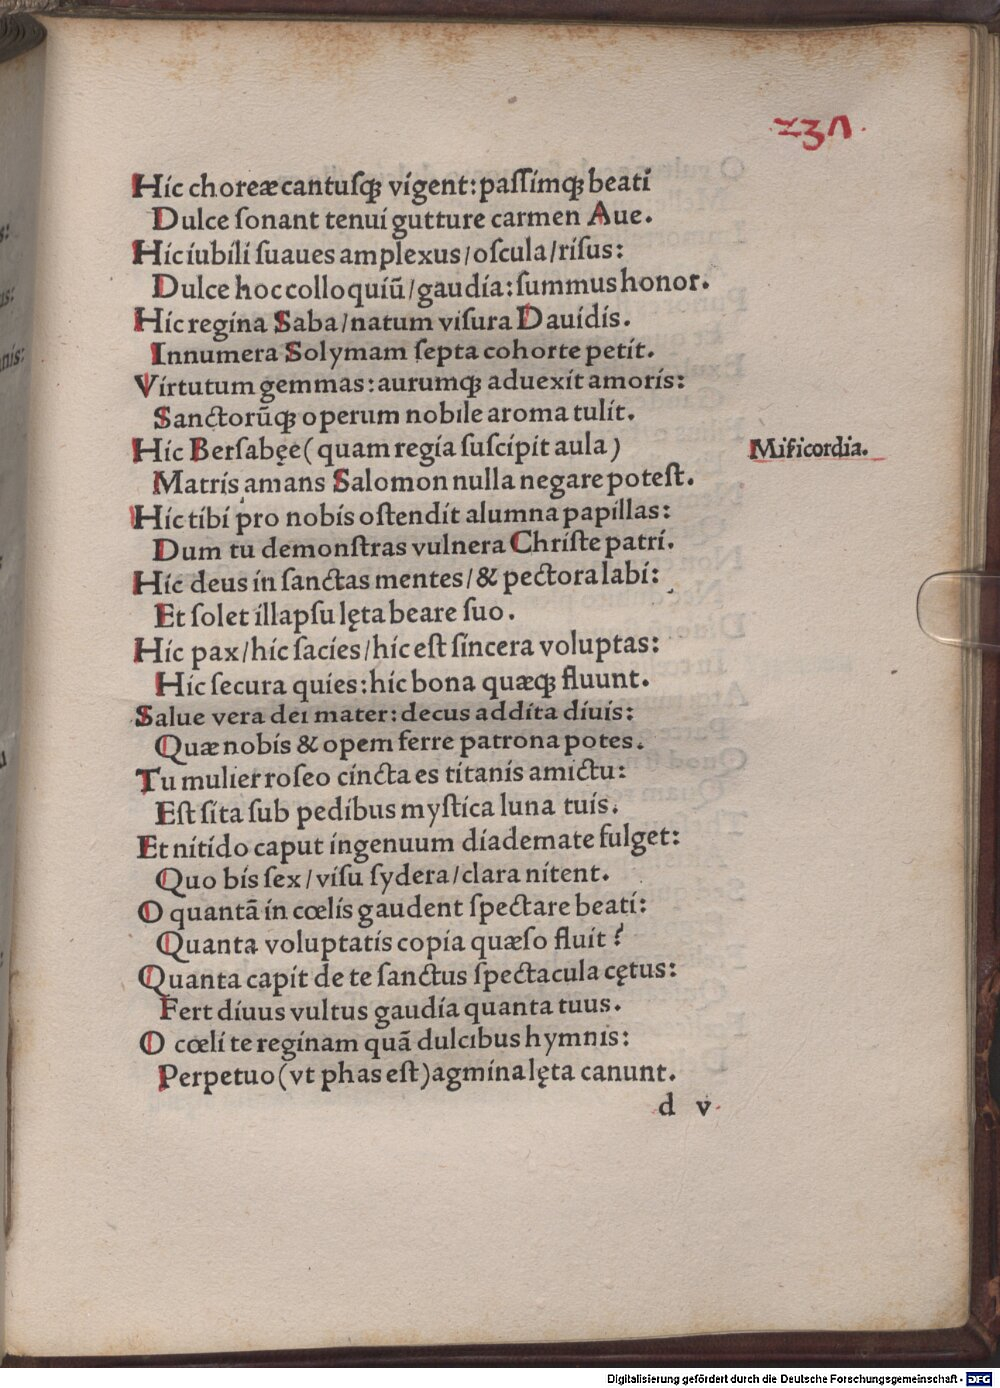 237
Hic choreæ cantusq̃ vigent: passimq̃ beati
Dulce sonant tenui gutture carmen Aue.
Hic iubili suaues amplexus/oscula/risus:
Dulce hoc colloquiũ/gaudia: summus honor.
Hic regina Saba/natum visura Dauidis.
Innumera Solymam septa cohorte petit.
Virtutum gemmas: aurumq̃ aduexit amoris:
Sanctorũq̃ operum nobile aroma tulit.
Hic Bersabęe (quam regia suscipit aula) Misicordia.
Matris amans Salomon nulla negare potest.
Hic tibi pro nobis ostendit alumna papillas:
Dum tu demonstras vulnera Christe patri.
Hic deus in sanctas mentes/& pectora labi:
Et solet illapsu lęta beare suo.
Hic pax/hic sacies/hic est sincera voluptas:
Hic secura quies: hic bona quæq̃ fluunt.
Salue vera dei mater: decus addita diuis:
Quæ nobis & opem ferre patrona potes.
Tu mulier roseo cincta es titanis amictu:
Est sita sub pedibus mystica luna tuis.
Et nitido caput ingenuum diademate fulget:
Quo bis sex/visu sydera/clara nitent.
O quantã in cœlis gaudent spectare beati:
Quanta voluptatis copia quæso fluit?
Quanta capit de te sanctus spectacula cętus:
Fert diuus vultus gaudia quanta tuus.
O cœli te reginam quã dulcibus hymnis:
Perpetuo (vt phas est) agmina lęta canunt.
d v
Digitalisierung gefördert durch die Deutsche Forschungsgemeinschaft - DFG